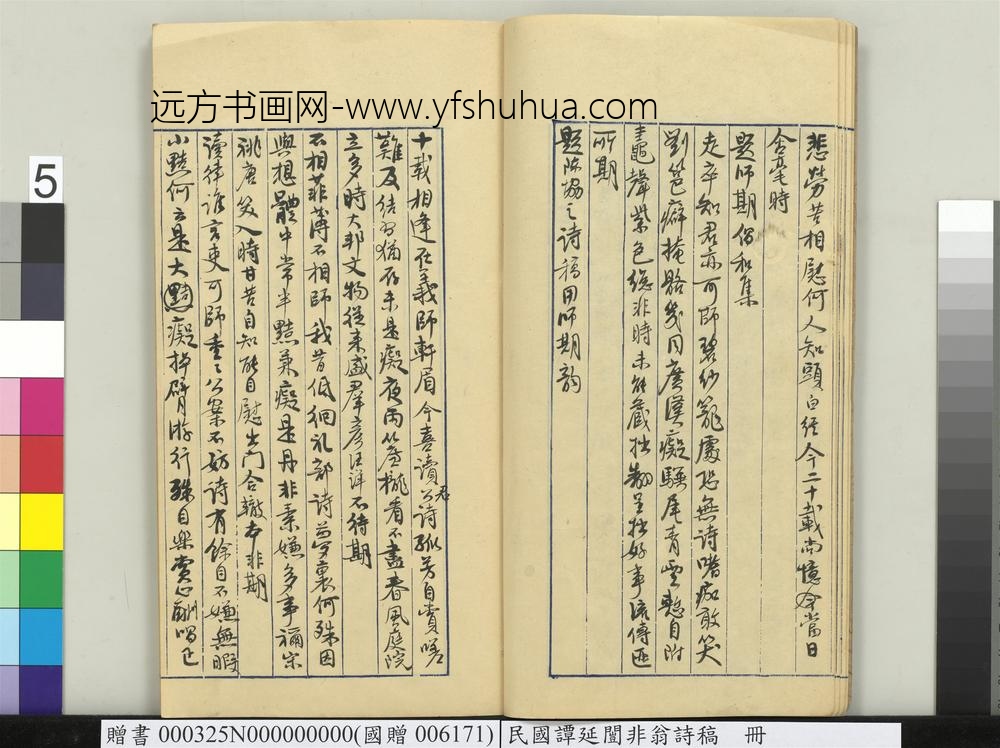 远方书画网-www.yfshuhua.com
悲勞苦相慰何人知頭白經今二十載尚憶當日
含毫時
題師期倡和集
走卒知君亦可師碧紗籠處恐無詩嗜痂敢笑
劉邕癖掩骼幾同廣漢癡驥尾青雲慙自附
鼃聲紫色總非時未能藏拙翻呈拙好事流傳匪
所期
題陳協之詩稿用師期韵
十載相逢在義師軒眉今喜讀君詩孤芳自賞嗟
難及結習猶存未是癡夜雨簾櫳看不盡春風庭院
立多時大邦文物從來盛羣彥汪洋不待期
不相菲薄不相師我昔低徊禮部詩何殊因
與想體中常半黠兼癡是丹非素嫌多事禰宋
祧唐父入時甘苦自知能自慰出門合轍本非期
讀律誰言吏可師重重公案不妨詩有餘自不嫌無暇
小黠何云是大黠癡掉臂游行殊自樂賞心酬唱正
5
贈書 000325N000000000(國贈 006171) 民國譚延闓非翁詩稿 冊